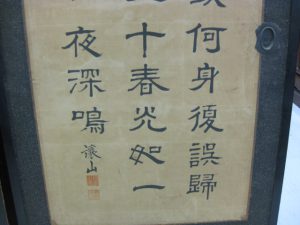 何身復誤歸
十春光如一
夜深鳴
山